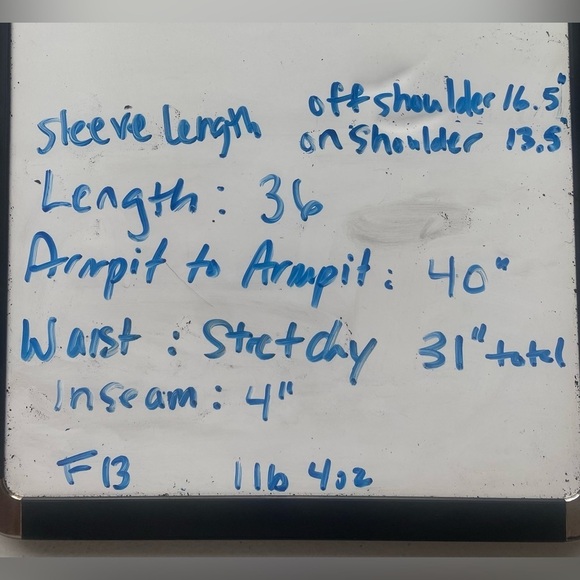 off shoulder 16.5"
sleeve length on shoulder 13.5"
Length: 36
Armpit to Armpit: 40"
Waist: Stretchy 31" total
Inseam: 4"
F13 1 lb 4oz